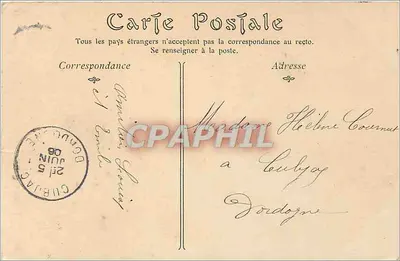 Carte Postale
Tous les pays étrangers n'acceptent pas la correspondance au recto.
Se renseigner à la poste.
Correspondance
Adresse
Amitiés
Louis
et Emile
Madame Hélène Cournut
a Cubjac
Dordogne
CUBJAC
DORDOGNE
5
JUIN
06
CPAPHIL